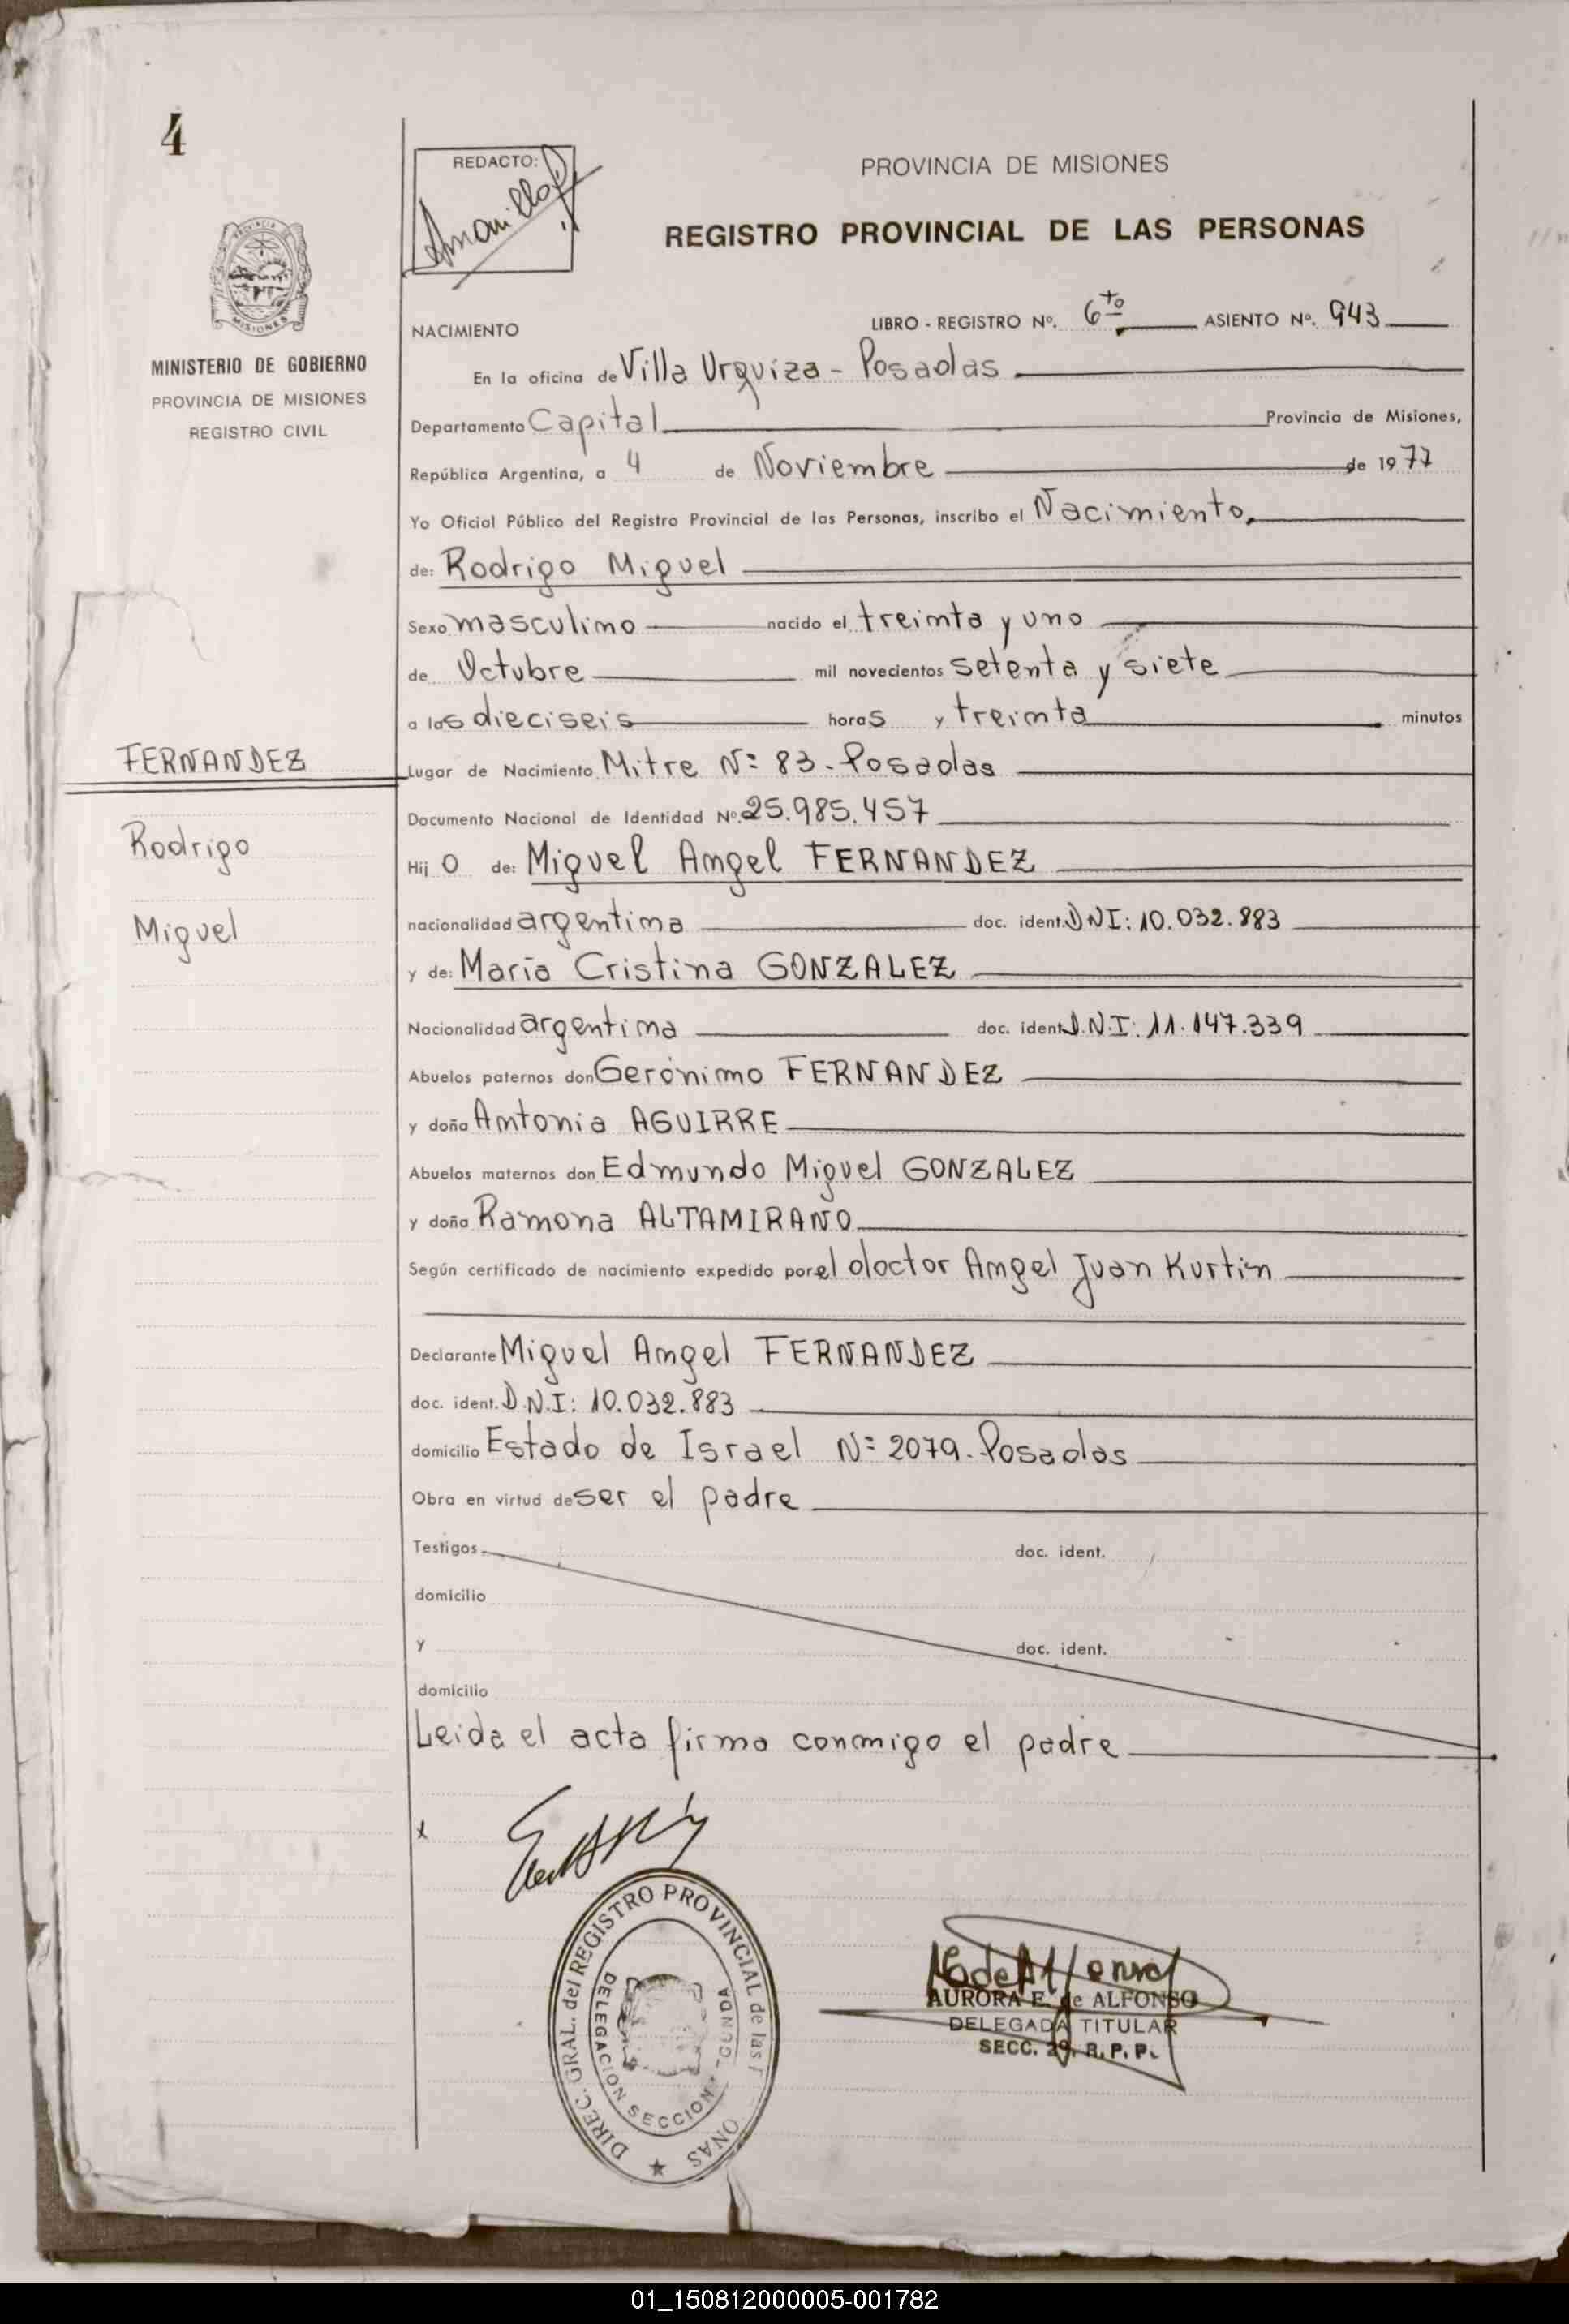 4
REDACTO:
PROVINCIA DE MISIONES
REGISTRO PROVINCIAL DE LAS PERSONAS
MISIONES
MINISTERIO DE GOBIERNO
PROVINCIA DE MISIONES
REGISTRO CIVIL
NACIMIENTO
LIBRO - REGISTRO Nº. 6to ASIENTO Nº. 943
En la oficina de Villa Urquiza - Posadas
Departamento Capital Provincia de Misiones,
República Argentina, a 4 de Noviembre de 1977
Yo Oficial Público del Registro Provincial de las Personas, inscribo el Nacimiento.
de: Rodrigo Miguel
Sexo masculino nacido el treinta y uno
de Octubre mil novecientos setenta y siete
a las dieciseis horas y treinta minutos
FERNANDEZ
Rodrigo
Miguel
Lugar de Nacimiento Mitre Nº 83 - Posadas
Documento Nacional de Identidad Nº. 25.985.457
Hij o de: Miguel Angel FERNANDEZ
nacionalidad argentina doc. ident. DNI: 10.032.883
y de: María Cristina GONZALEZ
Nacionalidad argentina doc. ident D.N.I: 11.147.339
Abuelos paternos don Gerónimo FERNANDEZ
y doña Antonia AGUIRRE
Abuelos maternos don Edmundo Miguel GONZALEZ
y doña Ramona ALTAMIRANO
Según certificado de nacimiento expedido por el doctor Angel Juan Kurtin
Declarante Miguel Angel FERNANDEZ
doc. ident. D.N.I: 10.032.883
domicilio Estado de Israel Nº 2079 - Posadas
Obra en virtud de ser el padre
Testigos doc. ident.
domicilio
y doc. ident.
domicilio
Leida el acta firma conmigo el padre
x
DIREC. GRAL. del REGISTRO PROVINCIAL de las ONAS
DELEGACION SECCION
AURORA E. de ALFONSO
DELEGADA TITULAR
SECC. 2ª. R. P. P.
01_150812000005-001782